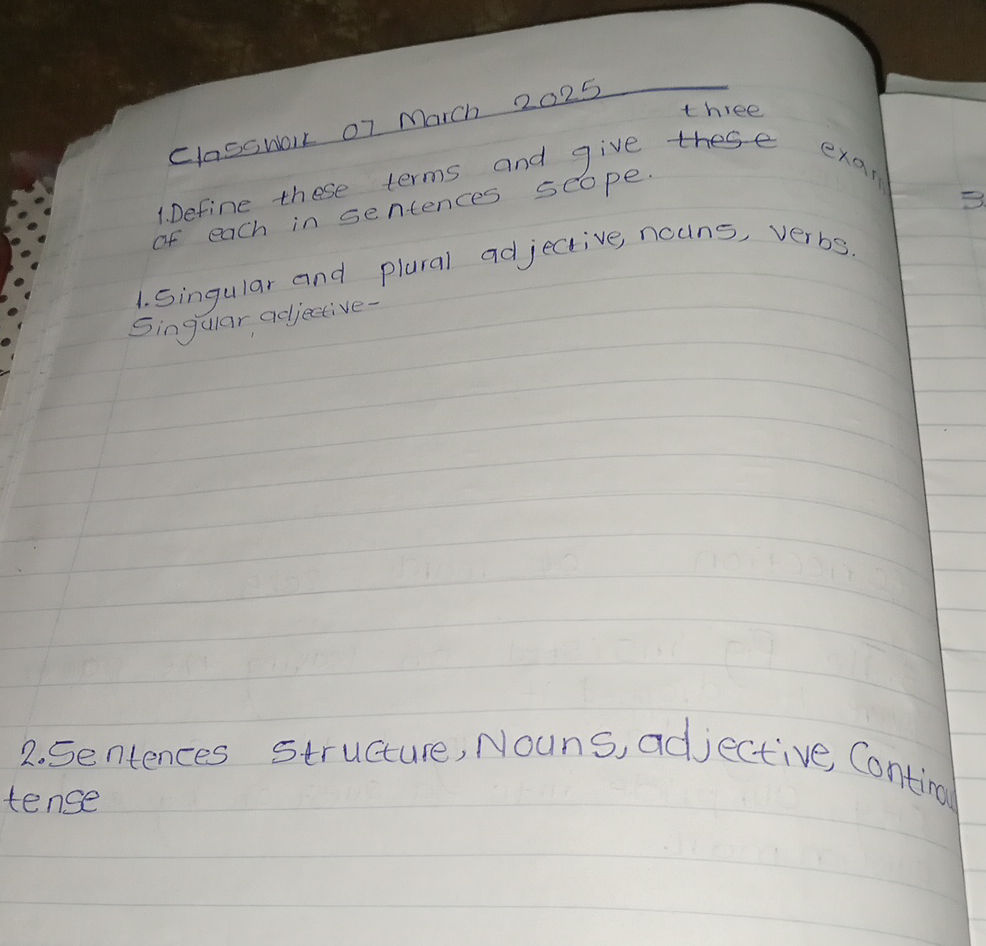 Classwork 07 March 2025
three
1.Define these terms and give these exam
of each in sentences scope.
1.Singular and plural adjective, nouns, verbs.
Singular adjective-
2.Sentences Structure, Nouns, adjective, Continou
tense
3.